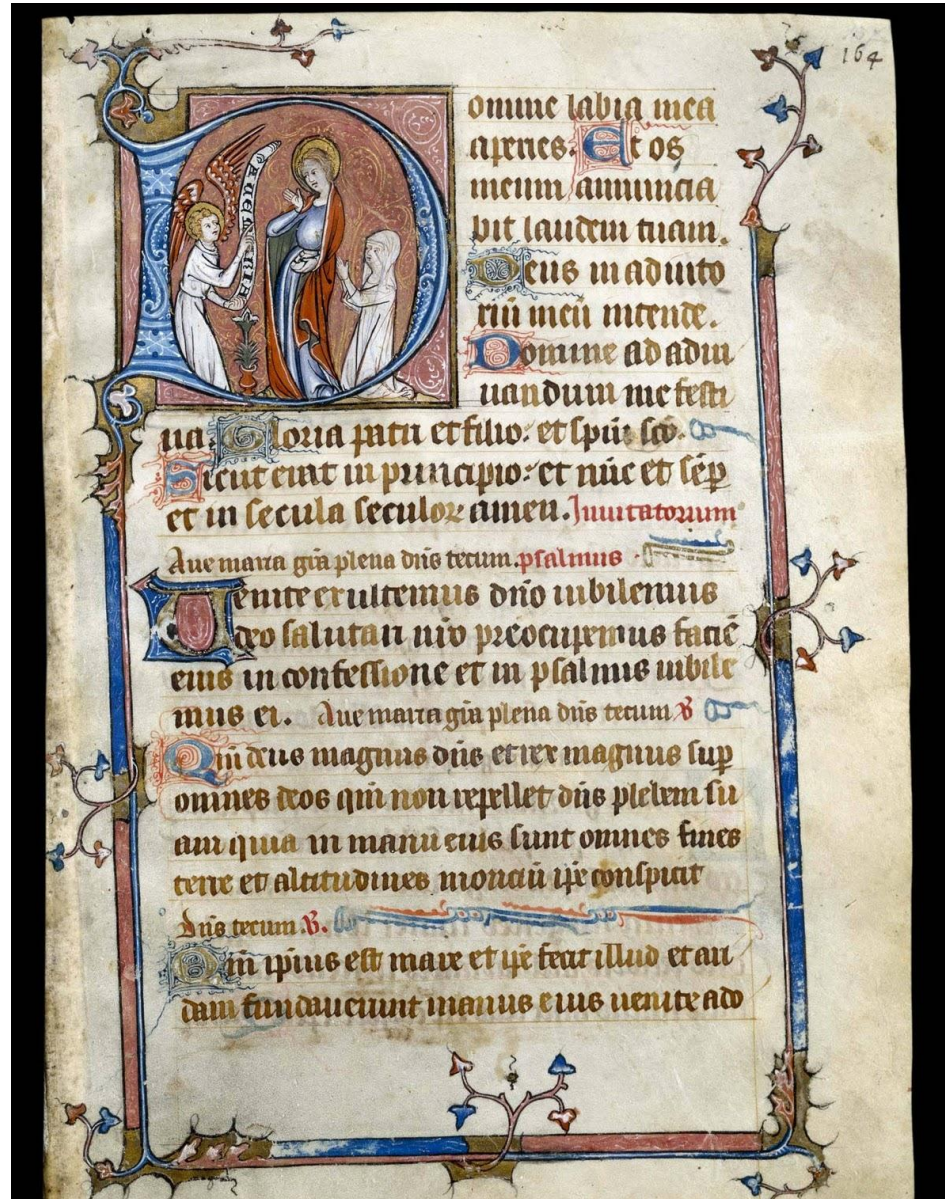 164
Domine labia mea
aperies. Et os
meum annuncia
bit laudem tuam.
Deus in adiuto
riū meū intende.
Domine ad adiu
uandum me festi
na. Gloria patri et filio. et spiri sc̄o.
Sicut erat in principio. et nūc et sēp
et in secula seculoꝝ amen. Inuitatorium
Aue maria gr̄a plena dn̄s tecum. psalmus
Uenite exultemus dn̄o iubilemus
deo salutari nr̄o preocupemus faciē
eius in confessione et in psalmis iubile
mus ei. Aue maria gr̄a plena dn̄s tecum
Qm̄ deus magnus dn̄s et rex magnus suꝑ
omnes deos qm̄ non repellet dn̄s plebem su
am quia in manu eius sunt omnes fines
terre et altitudines montiū ip̄e conspicit
Dn̄s tecum.
Qm̄ ipius est mare et ip̄e fecit illud et ari
dam fundauerunt manus eius uenite ado